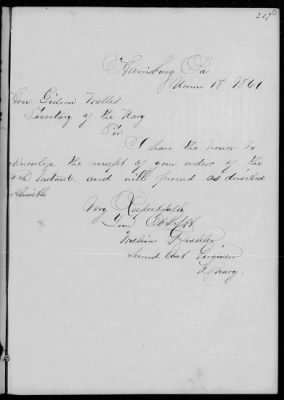 Harrisburg Pa
18 1861
Hon Gideon Welles
Secretary of the Navy
Sir
I have the honor to
acknowledge the receipt of your order of the
instant and will proceed as directed
Very Respectfully
Your Obt Svt
William
Second Asst Engineer
U S Navy